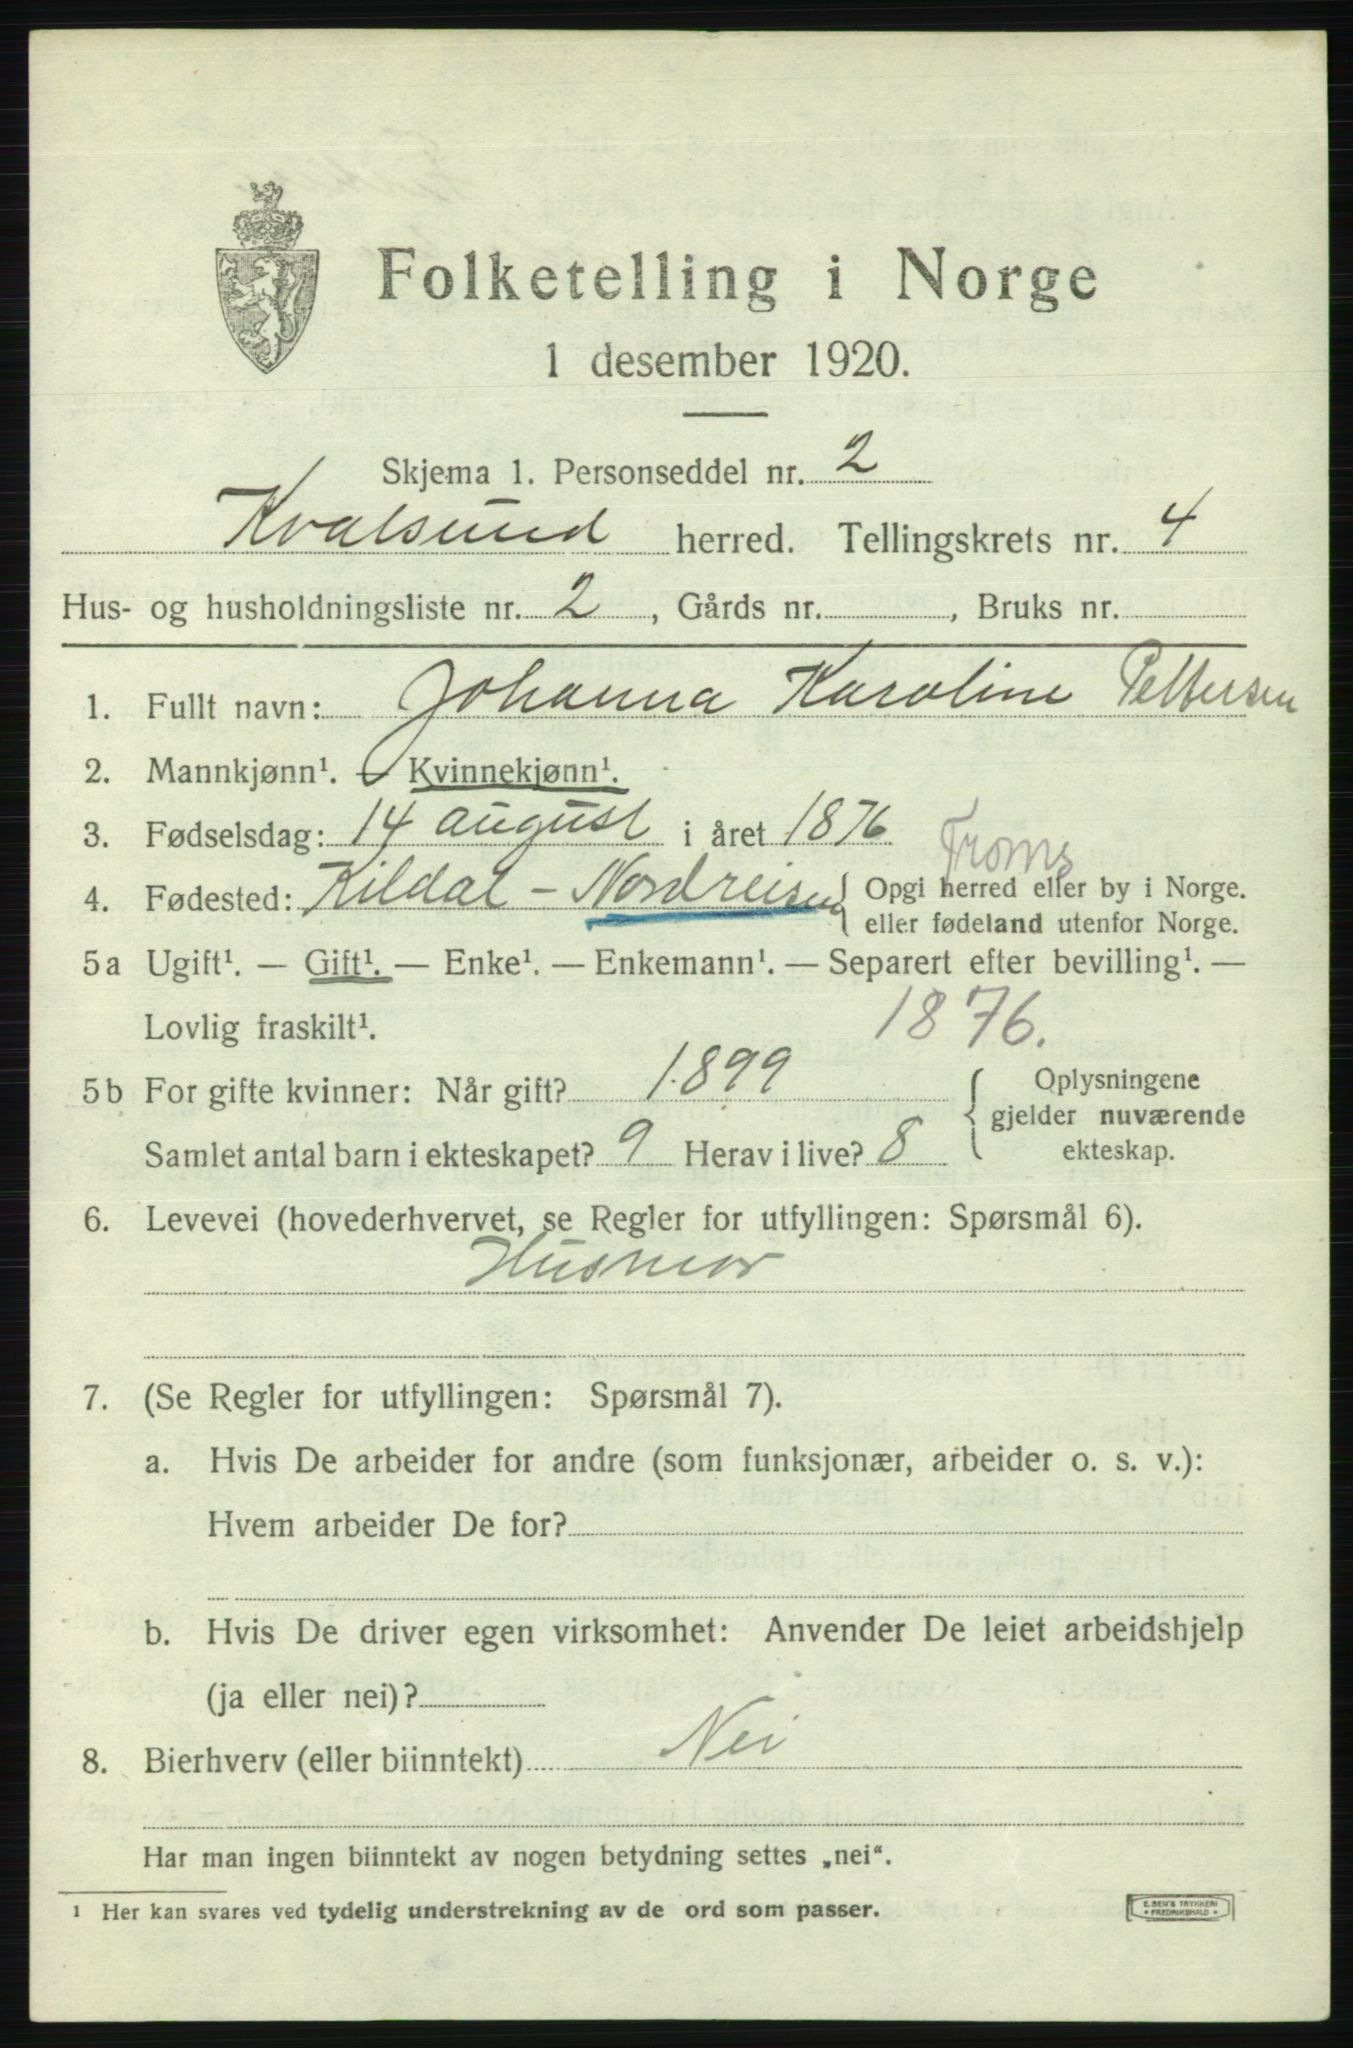 Folketelling i Norge
1 desember 1920.
Skjema 1. Personseddel nr. 2
Kvalsund herred. Tellingskrets nr. 4
Hus- og husholdningsliste nr. 2, Gårds nr. , Bruks nr.
1. Fullt navn: Johanna Karoline Pettersen
2. Mannkjønn¹. — Kvinnekjønn¹.
3. Fødselsdag: 14 august i året 1876
Troms
4. Fødested: Kildal - Nordreisen { Opgi herred eller by i Norge.
eller fødeland utenfor Norge.
5a Ugift¹. — Gift¹. — Enke¹. — Enkemann¹. — Separert efter bevilling¹. —
Lovlig fraskilt¹. 1876.
5b For gifte kvinner: Når gift? 1899
Samlet antal barn i ekteskapet? 9 Herav i live? 8
{ Oplysningene
gjelder nuværende
ekteskap.
6. Levevei (hovederhvervet, se Regler for utfyllingen: Spørsmål 6).
Husmor
7. (Se Regler for utfyllingen: Spørsmål 7).
a. Hvis De arbeider for andre (som funksjonær, arbeider o. s. v.):
Hvem arbeider De for?
b. Hvis De driver egen virksomhet: Anvender De leiet arbeidshjelp
(ja eller nei)?
8. Bierhverv (eller biinntekt) Nei
Har man ingen biinntekt av nogen betydning settes „nei“.
¹ Her kan svares ved tydelig understrekning av de ord som passer.
E. SEM'S TRYKKERI
FREDRIKSHALD